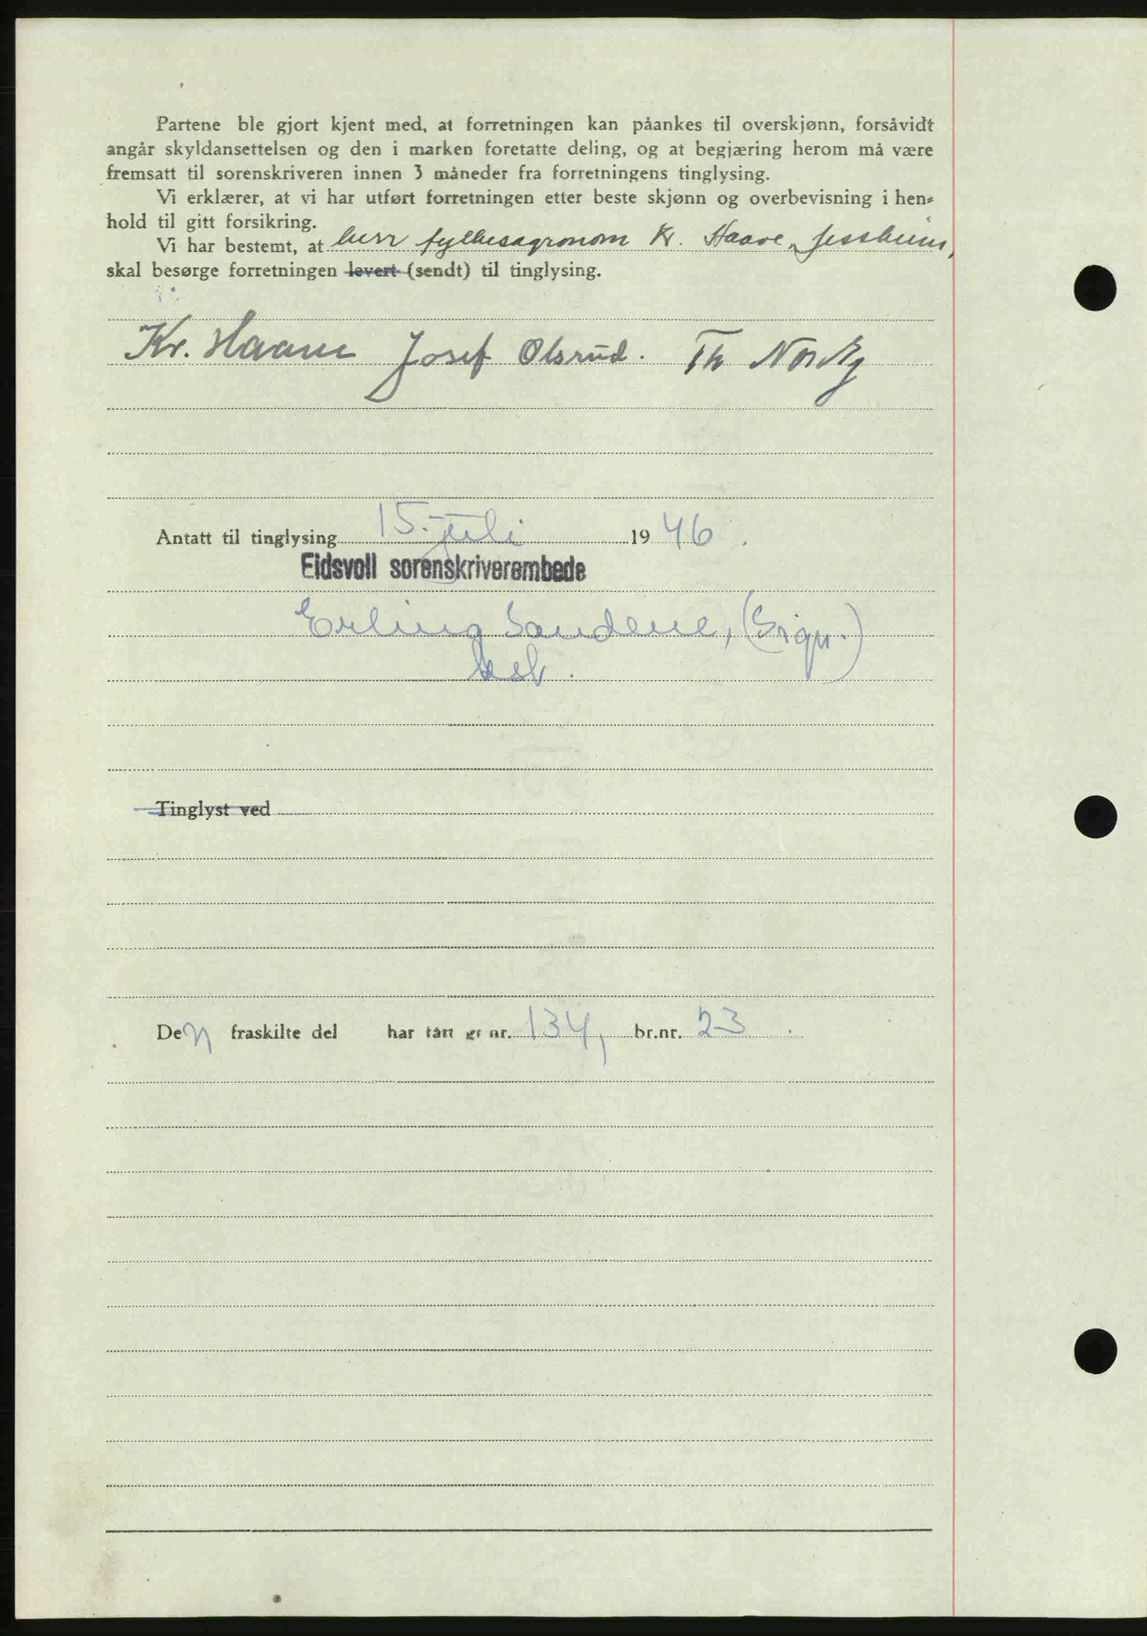 Partene ble gjort kjent med, at forretningen kan påankes til overskjønn, forsåvidt
angår skyldansettelsen og den i marken foretatte deling, og at begjæring herom må være
fremsatt til sorenskriveren innen 3 måneder fra forretningens tinglysing.
Vi erklærer, at vi har utført forretningen etter beste skjønn og overbevisning i hen-
hold til gitt forsikring.
Vi har bestemt, at herr fylkesagronom Kr. Haave, Jessheim,
skal besørge forretningen levert (sendt) til tinglysing.
Kr. Haave Josef Olsrud. Th
Antatt til tinglysing 15. juli 1946.
Eidsvoll sorenskriverembede
Erling Sandene, (Sign.)
Tinglyst ved
Den fraskilte del har fått gr nr. 134, br.nr. 23.